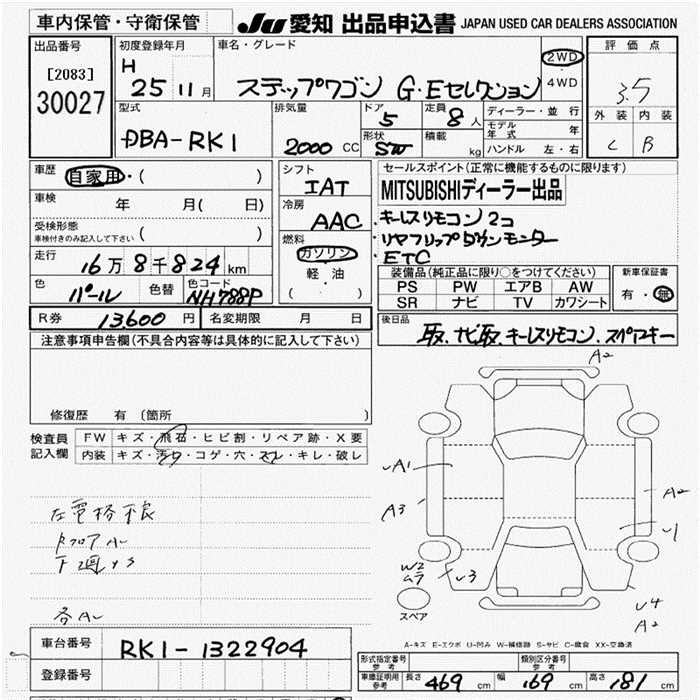 車内保管・守衛保管
JU 愛知 出品申込書 JAPAN USED CAR DEALERS ASSOCIATION
出品番号
[2083]
30027
初度登録年月
H 25 11 月
車名・グレード
ステップワゴン G・Eセレクション
2WD
4WD
評価点
3.5
外装 内装
C B
型式
DBA-RK1
排気量
2000 CC
ドア
5
定員
8 人
形状
SW
積載
kg
ディーラー・並行
モデル年式 年
ハンドル 左・右
車歴
自家用・( )
車検
年 月( 日)
受検形態
車検付きのみ記入して下さい ( )
走行
16万8千824km
色
パール
色替
色コード
NH788P
シフト
IAT
冷房
AAC
燃料
ガソリン
軽・油
( )
セールスポイント(正常に機能するものに限ります)
MITSUBISHIディーラー出品
・キーレスリモコン 2コ
・リヤフリップダウンモニター
・ETC
装備品(純正品に限り○をつけてください)
PS PW エアB AW
SR ナビ TV カワシート
新車保証書
有・無
R券 13,600 円
名変期限 月 日
後日品
取、ナビ取、キーレスリモコン、スペアキー
注意事項申告欄(不具合内容等は具体的に記入して下さい)
修復歴 有 (箇所 )
検査員記入欄
FW キズ・飛石・ヒビ割・リペア跡・X要
内装 キズ・汚れ・コゲ・穴・スレ・キレ・破レ
左電格不良
下廻りS
各A
A2
A1
A3
A2
U1
W2
ムラ
U3
U4
A2
スペア
A-キズ E-エクボ U-凹み W-補修跡 S-サビ C-腐食 XX-交換済
車台番号
RK1-1322904
登録番号
形式指定番号 参考
類別区分番号 参考
車庫証明用参考
長さ 469 cm 幅 169 cm 高さ 181 cm